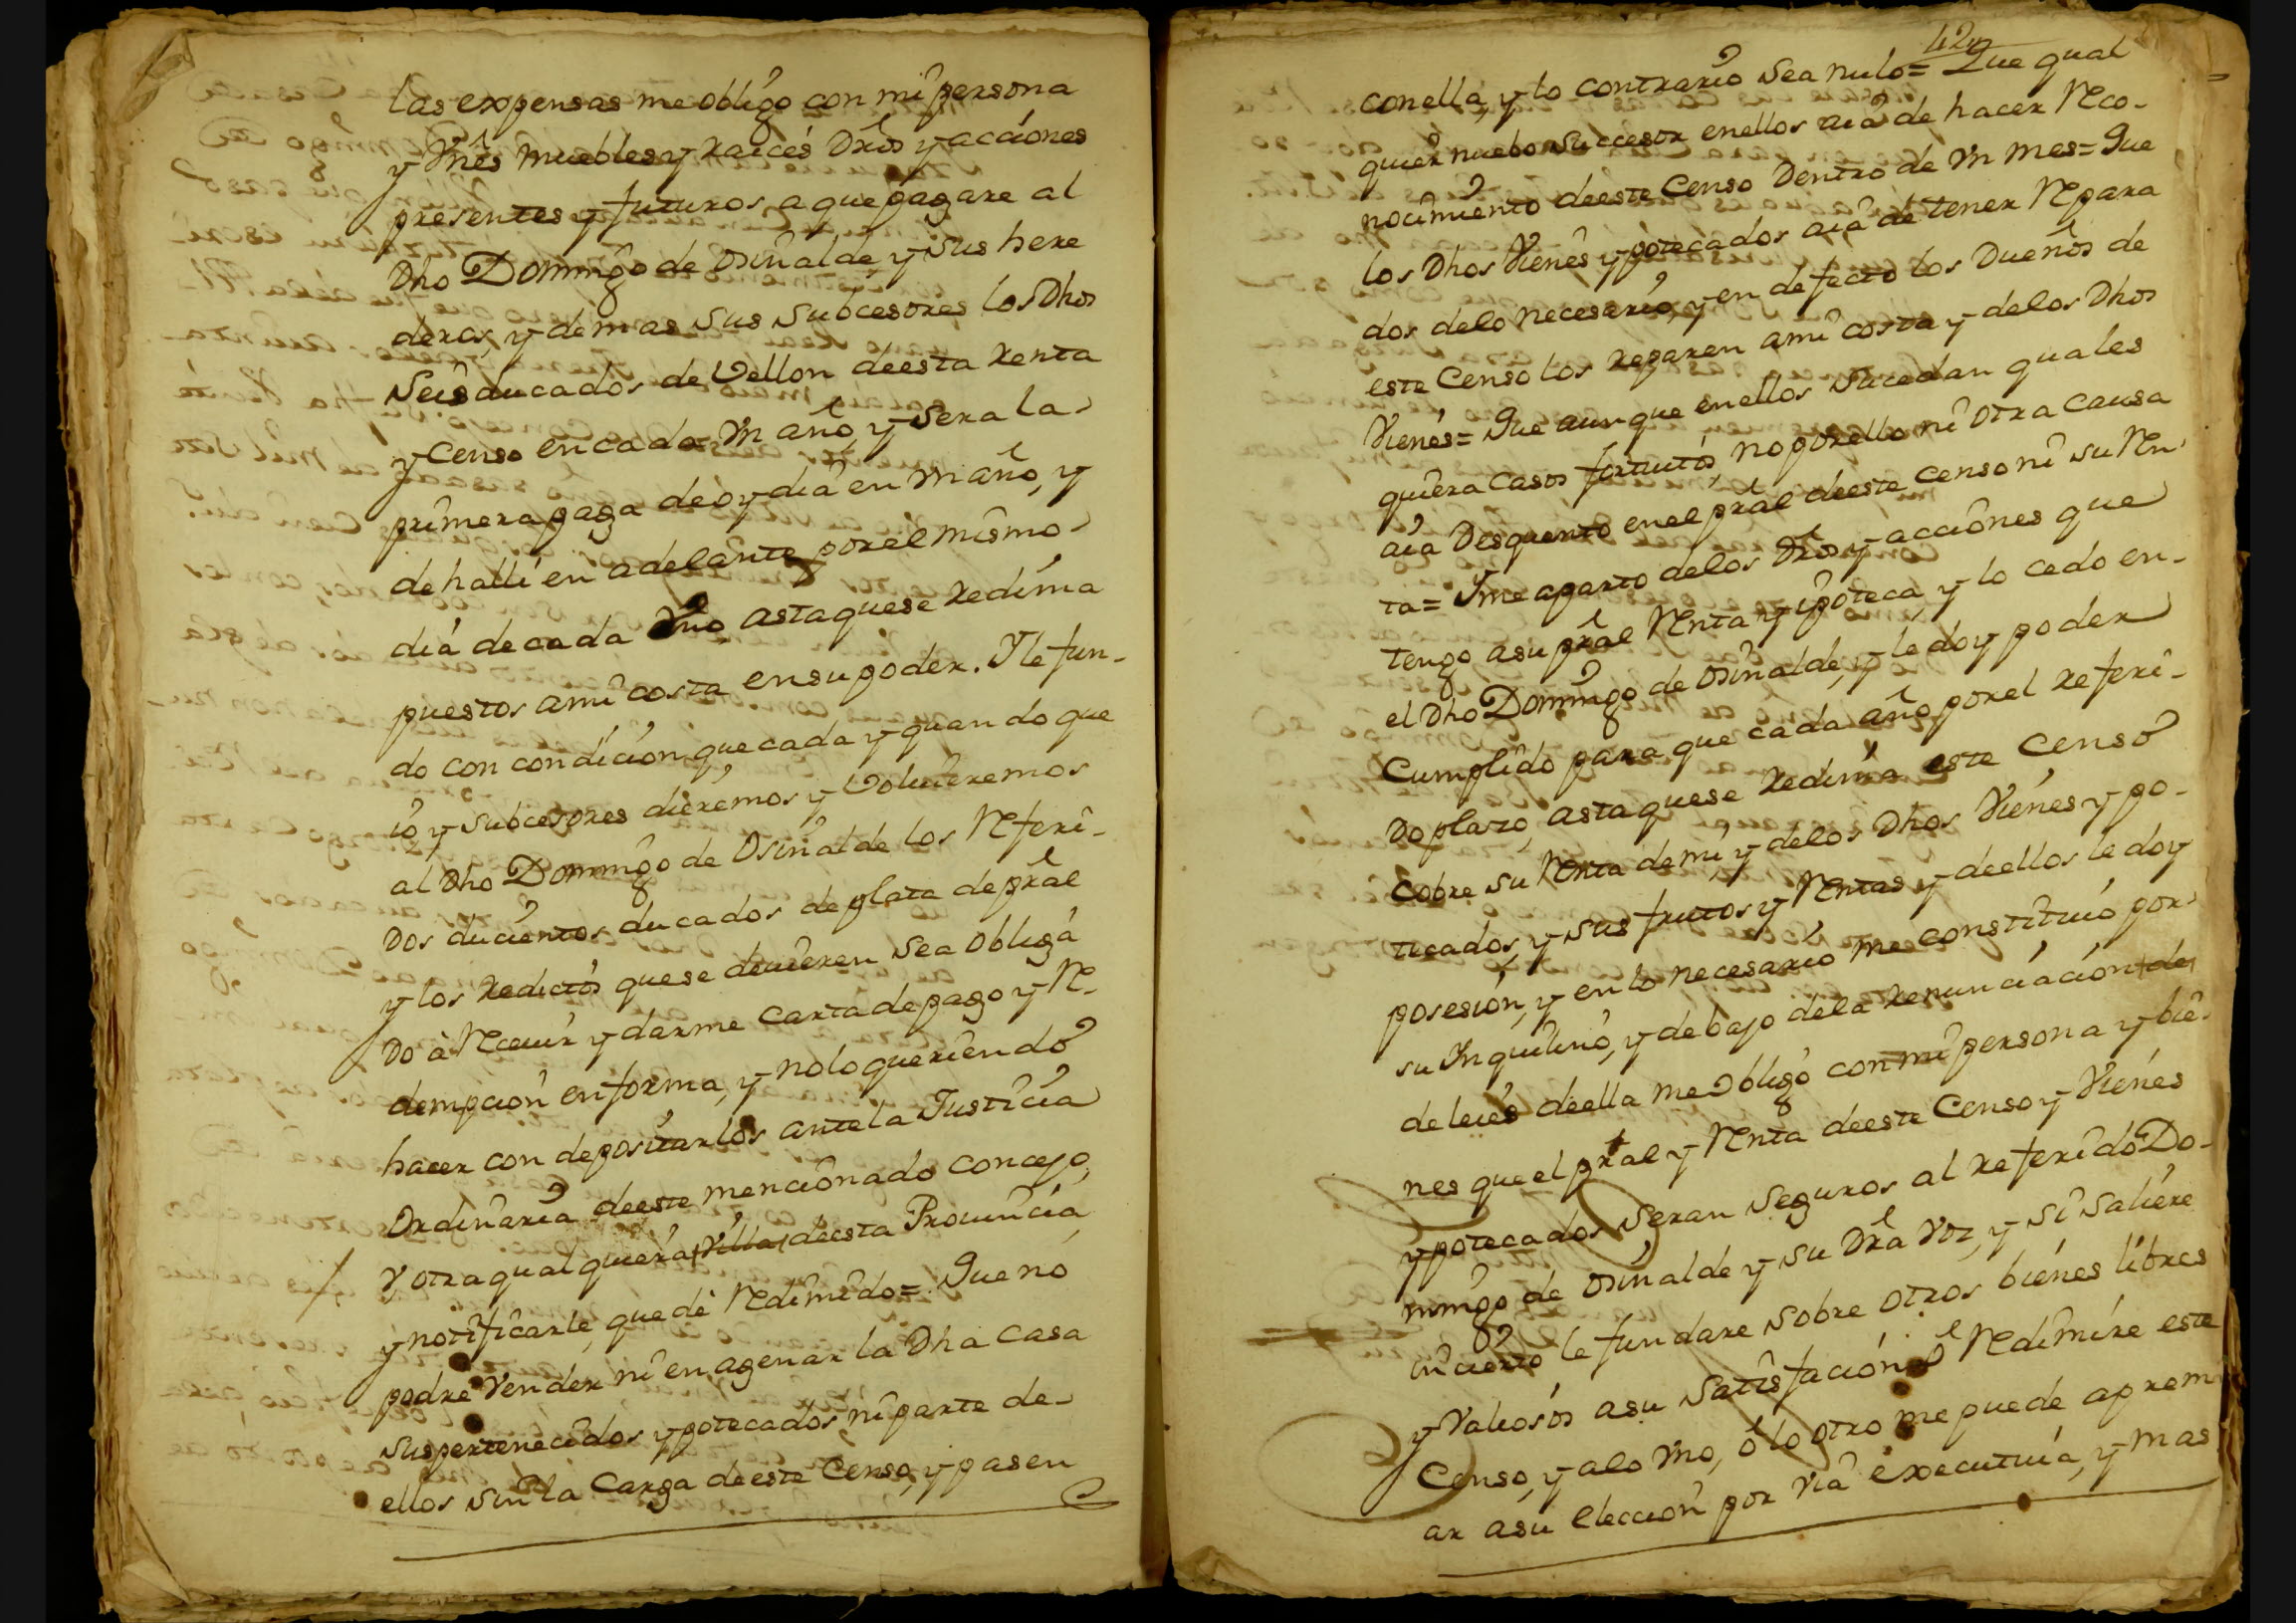 las expensas me obligo con mi persona
y Vnês muebles y raices Drõs y acciones
presentes y futuros, a que pagare al
Dho Domingo de Osinalde, y sus here
deros, y demas sus subcesores los Dhos
Seis ducados de Vellon de esta renta
y Censo en cada Vn año, y sera la
primera paga de oy dia en Vn año, y
de halli en adelante por el mismo
dia de cada Vno asta que se redima
puestos a mi costa en su poder. Y le fun-
do con condicion que cada y quando que
io y subcesores dieremos y Voluieremos
al Dho Domingo de Osinalde los Referi-
dos ducientos ducados de plata de prâl
y los redictos que se deuieren sea obliga
do à Receuir y darme carta de pago y Re-
dempcion en forma, y no lo queriendo
hacer con depositarlos ante la Justicia
Ordinaria de este mencionado concejo,
V otra qualquiera Villa de esta Prouincia
y notificarle, quede Redimido = Que no
podre Vender ni enagenar la Dha casa
sus pertenecidos ypotecados, ni parte de
ellos sin la Carga de este Censo, y pasen
42
con ella, y lo contrario sea nulo = Que qual
quier nuebo Succesor en ellos aia de hacer Reco-
nocimiento de este Censo Dentro de Vn mes = Que
los Dhos Vienes ypotecados aia de tener Repara
dos de lo necesario, y en defecto los Dueños de
este Censo los reparen a mi costa y de los Dhos
Vienes = Que aunque en ellos sucedan quales
quiera Casos fortuitos, no por ello ni otra causa
aia Desquento en el prâl de este censo ni su Ren
ta = Y me aparto de los Drõs y acciones que
tengo a su prâl Renta y ipoteca, y lo cedo en
el Dho Domingo de Osinalde, y le doy poder
Cumplido para que cada año por el referi-
Do plazo, asta que se redima este Censo
Cobre su Renta de mi, y de los Dhos Vienes ypo-
tecados, y sus frutos y Rentas y de ellos le doy
posesion, y en lo necesario me constituio por
su Inquilino, y debajo de la renunciacion de
de leies de ella me obligo con mi persona y bie-
nes que el prâl y Renta de este Censo y Vienes
ypotecados Seran Seguros al referido Do-
mingo de Osinalde y su Drâ Voz, y si Saliere
incierto le fundare sobre otros bienes libres
y Valiosos a su Satisfacion ô Redimire este
Censo, y a lo Vno, ô lo otro me puede aprem
ar a su eleccion por via executiua, y mas